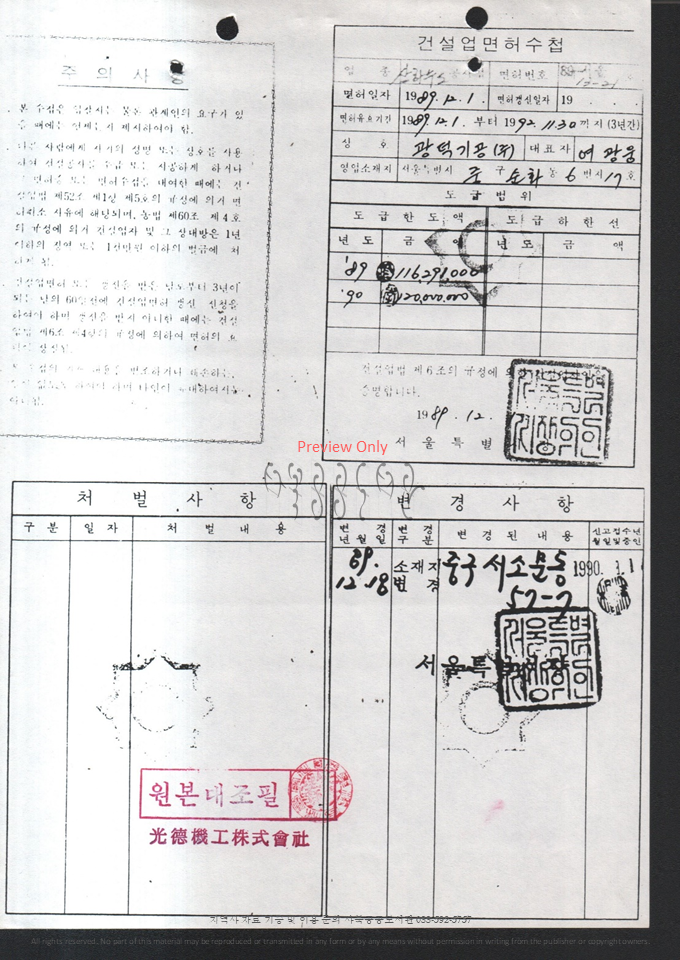 주 의 사 항
본 수첩은
때에는 언제든지 제시하여야 함.
다른 사람에게 자기의 성명 또는 상호를 사용
하여 건설공사를 수급 또는 시공하게 하거나
면허증 또는 면허수첩을 대여한 때에는 건
설업법 제52조 제1항 제5호의 규정에 의거 면
허취소 사유에 해당되며, 동법 제60조 제4호
의 규정에 의거 건설업자 및 그 상대방은 1년
이하의 징역 또는 1천만원 이하의 벌금에 처
하게 됨.
건설업면허 또는 갱신을 받은 날로부터 3년이
되는 날의 60일전에 건설업면허 갱신 신청을
하여야 하며 갱신을 받지 아니한 때에는 건설
업법 제6조 제4항의 규정에 의하여 면허의 효
건설업면허수첩
업 종
면허번호
면허일자 1989. 12. 1. 면허갱신일자 19
면허유효기간 1989. 12. 1. 부터 1992. 11. 30 까지 (3년간)
상 호 광덕기공(주) 대표자 여광웅
영업소재지 서울특별시 중 구 순화 동 6 번지 17 호
도 급 범 위
도 급 한 도 액 도 급 하 한 선
년 도 금 액 년 도 금 액
'89 116,291,000
'90 120,000,000
건설업법 제6조의 규정에
증명합니다.
1989. 12.
서 울 특 별
서울특별시장의인
Preview Only
처 벌 사 항
구 분 일 자 처 벌 내 용
변 경 사 항
변 경 년 월 일 변 경 구 분 변 경 된 내 용 신고접수년 월일및증인
89. 12. 18 소재지 변 경 중구 서소문동 57-7 1990. 1. 1
서울특별시장
서울특별시장의인
원본대조필
光德機工株式會社
지역사 자료 기증 및 이용 문의 사북공공도서관 033-592-5757
All rights reserved. No part of this material may be reproduced or transmitted in any form or by any means without permission in writing from the publisher or copyright owners.